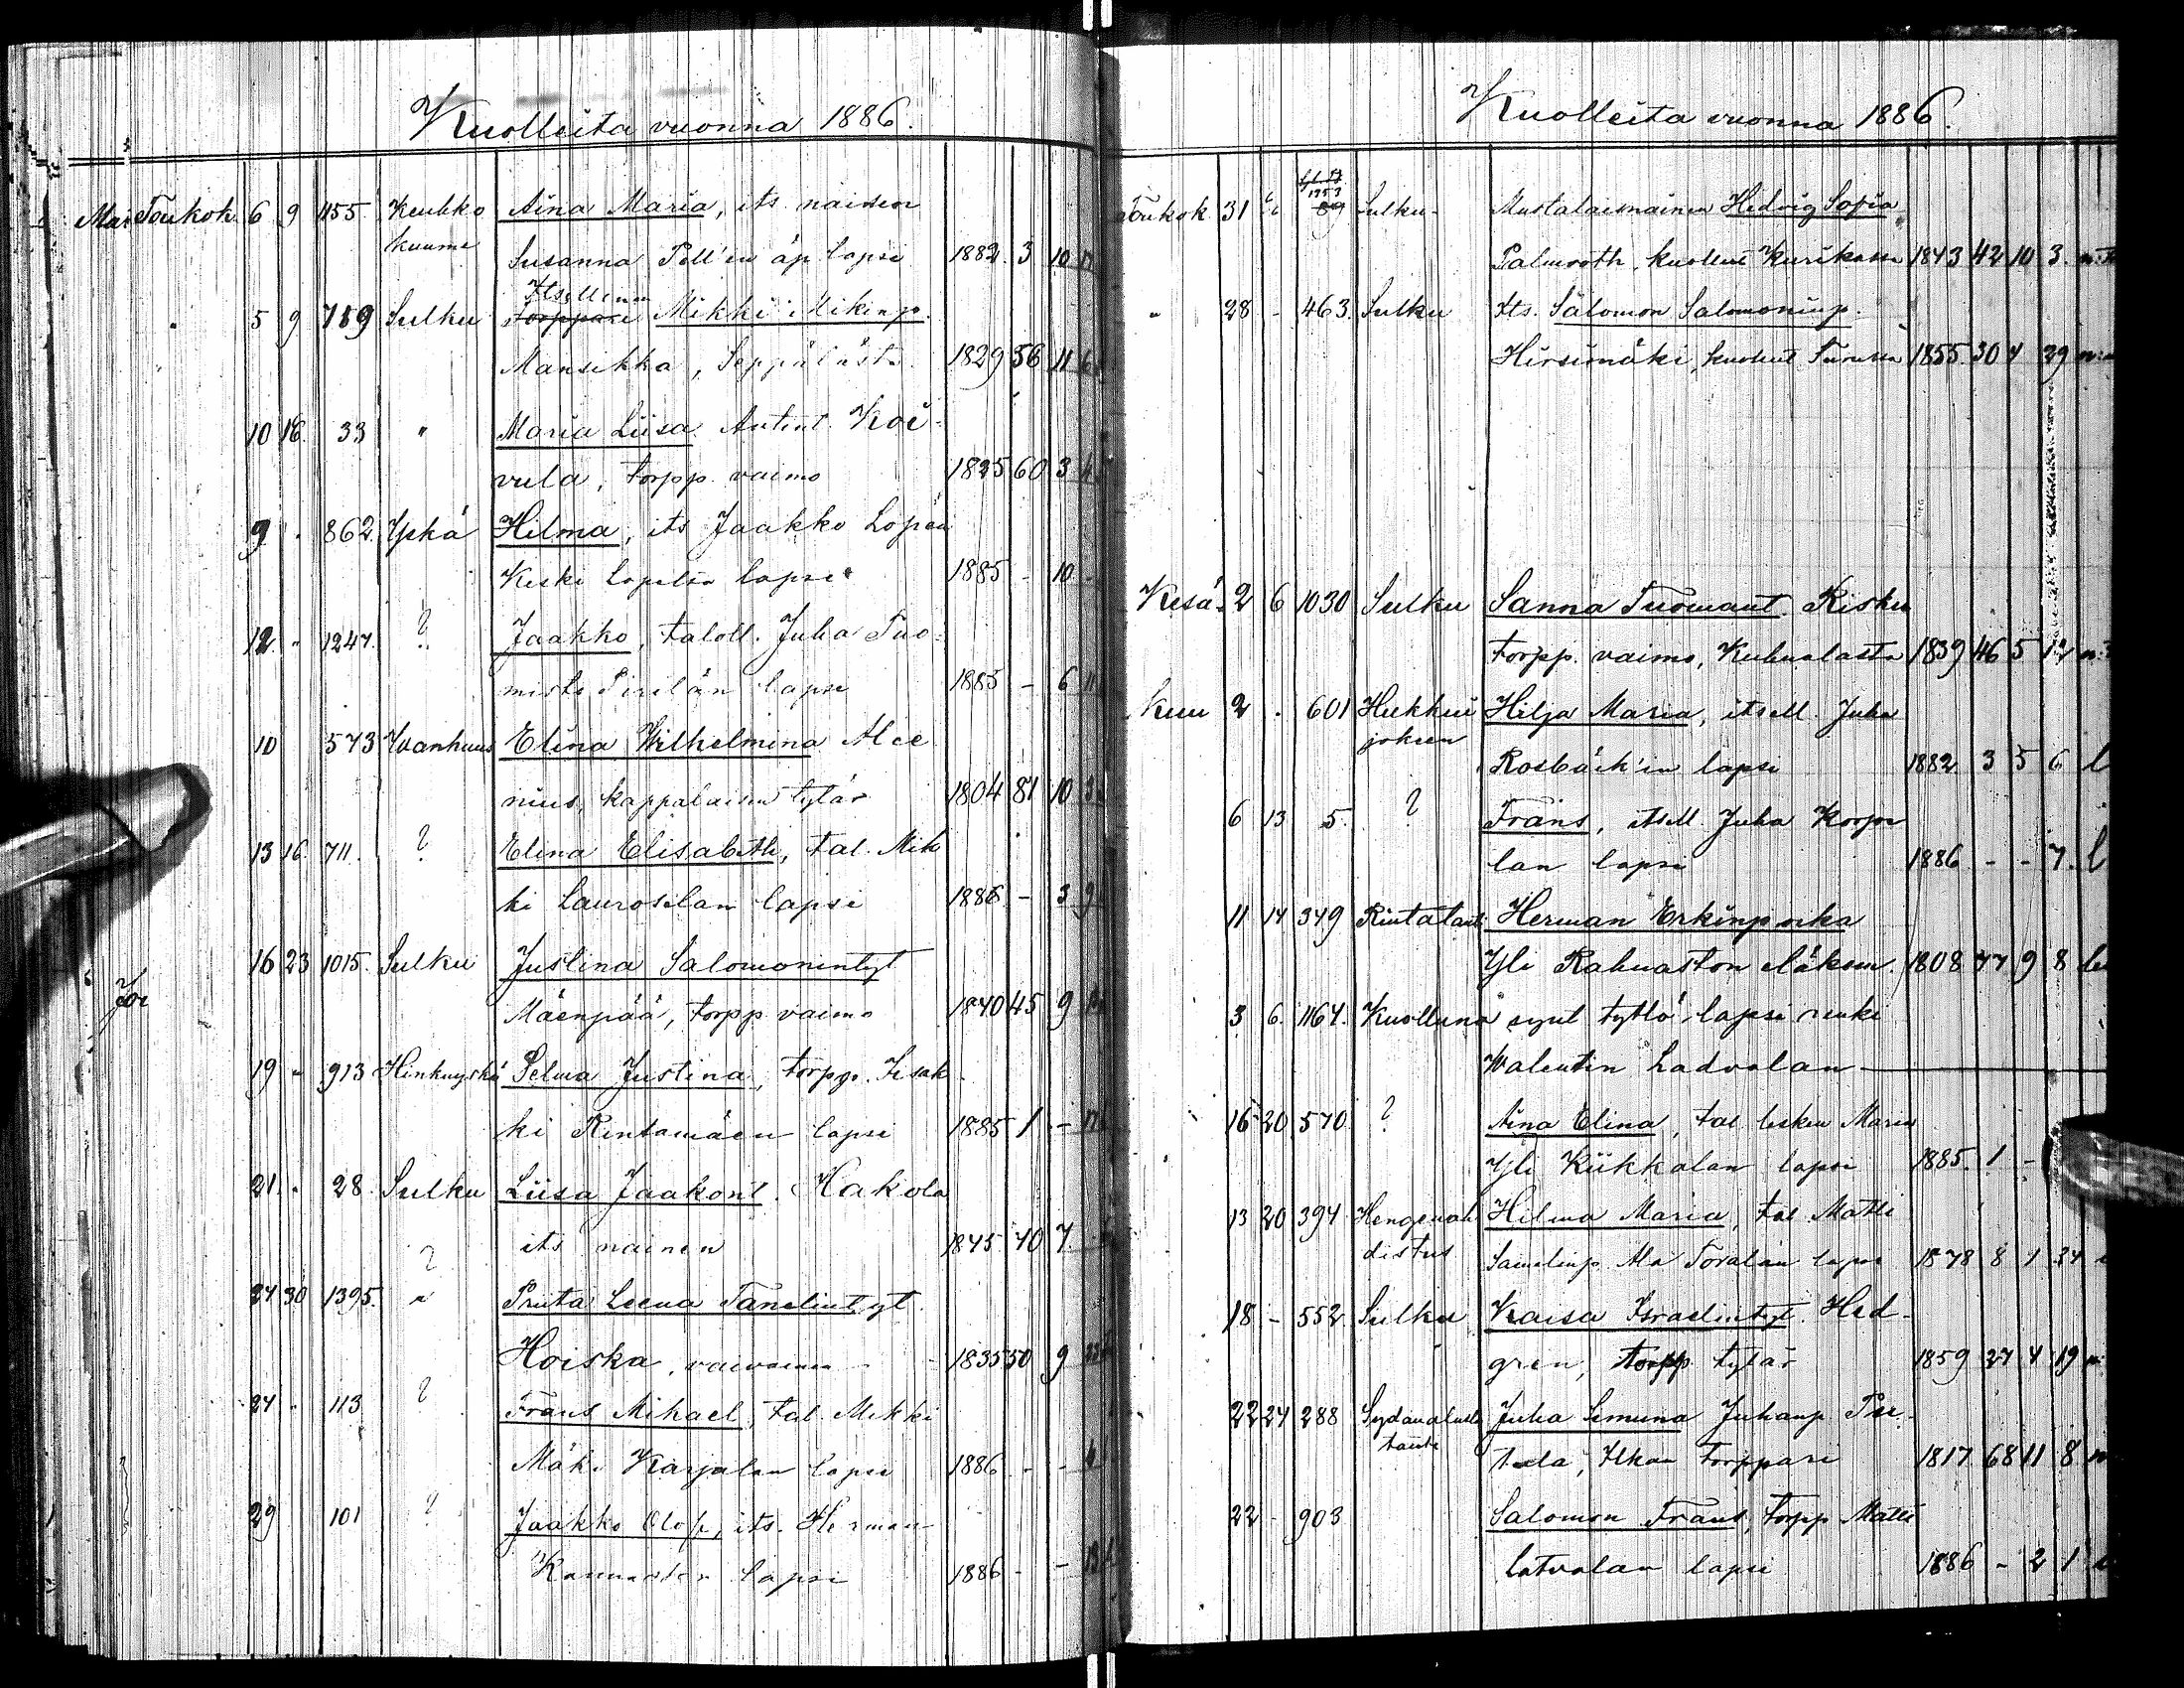 Kuolleita vuonna 1886.
Mai Toukok. 6 9 1155 Keuhko Aina Maria, its. naisen
kuume Susanna Pell'in äp. lapsi 1882. 3 10
Itsellinen
" 5 9 759 Sulku Torppari Mikki Mikinp.
Mansikka, Seppälästä 1829 56 11 6
10 16 33 " Maria Liisa Antint. Koi-
vula, torpp. vaimo 1825 60 3
9 . 862 Yskä Hilma, its Jaakko
Keski lapsi 1885 - 10 -
12 " 1247. ? Jaakko, taloll. Juha Tuo-
misto Pirilän lapsi 1885 - 6 11
10 573 Wanhuus Elina Wilhelmina Ale
nius, kappalaisen tytär 1804 81 10
13 16 711. ? Elina Elisabeth, tal. Mik
ki Lauroselan lapsi 1886 - 3 9
16 23 1015. Sulku Justina Salomonintyt
Mäenpää, torpp. vaimo 1840 45 9
19 " 913 Hinkuyskä Selma Justina, torpp. Iisak
ki Rintamäen lapsi 1885 1 -
21. " 28 Sulku Liisa Jaakont. Hakola
its nainen 1845 40 7
24 30 1395. ? Priita Leena Tanelintyt.
Hoiska, vaivainen 1835 50 9
24 " 113 ? Frans Mikael, tal. Mikki
Mäki Karjalan lapsi 1886 - -
29 101 ? Jaakko Olof, its. Herman
lapsi 1886 - -
Kuolleita vuonna 1886.
Toukok. 31 1353
89 Sulku- Mustalaisnainen Hedvig Sofia
Palmroth, kuollut Kurikassa 1843 42 10 3.
" 28 - 463. Sulku Its. Salomon Salomoninp.
Hirsimäki, kuollut Turussa 1855 30 4 29
Kesä- 2 6 1030 Sulku Sanna Tuomaant. Risku
torpp. vaimo, Kuhnalasta 1839 46 5 12
kuu 2 . 601 Hukkui Hilja Maria, itsell. Juha
joksen Rosbäck'in lapsi 1882 3 5 6 l
6 13 5. ? Frans, itsell. Juha Korpe
lan lapsi 1886 - - 7. l
11 14 349 Rintataut. Herman Erkinpoika
Yli Rahnaston eläkem. 1808 77 9 8
3 6. 1164. Kuolleena synt tyttö lapsi renki
Walentin Ladvalan
16 20 570 ? Aina Elina, tal. lesken Maria
Yli Kiikkalan lapsi 1885. 1 -
13 20 394 Hengenah Hilma Maria, tal Matti
distus Samelinp. Ala Toralan lapsi 1878 8 1 24
18 - 552 Sulku Kaisa Israelintyt. Hed-
gren, torpp. tytär 1859 27 4 19
22 24 288 Juha Simuna Juhanp
tauti torppari 1817 68 11 8
22 - 903 Salomon Frans, torpp Matti
Latvalan lapsi 1886 - 2 1